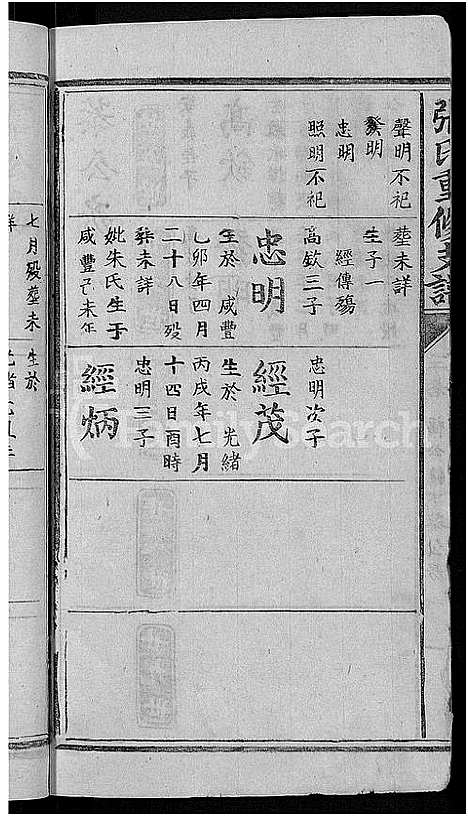 張氏重修支譜
聲明不祀
發明
忠明
照明不祀
塟未詳
生子一
經傳殤
高欽三子
忠明
生於咸豐
乙卯年四月
二十八日殁
葬未詳
妣朱氏生于
咸豐己未年
忠明次子
經茂
生於光緒
丙戌年七月
十四日酉時
忠明三子
經炳
七月殁塟未
詳
生於
FamilySearch